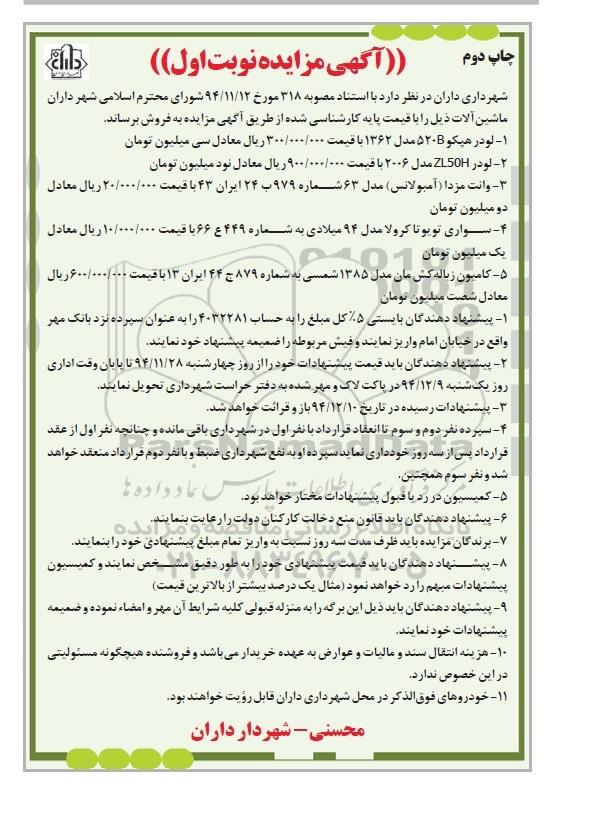 چاپ دوم
((آگهی مزایده نوبت اول))
شهرداری داران در نظر دارد با استناد مصوبه ۳۱۸ مورخ ۹۴/۱۱/۱۲ شورای محترم اسلامی شهر داران
ماشین آلات ذیل را با قیمت پایه کارشناسی شده از طریق آگهی مزایده به فروش برساند.
۱- لودر هپکو ۵۲۰B مدل ۱۳۶۲ با قیمت ۳۰۰/۰۰۰/۰۰۰ ریال معادل سی میلیون تومان
۲- لودر ZL50H مدل ۲۰۰۶ با قیمت ۹۰۰/۰۰۰/۰۰۰ ریال معادل نود میلیون تومان
۳- وانت مزدا (آمبولانس) مدل ۶۳ شماره ۹۷۹ ب ۲۴ ایران ۴۳ با قیمت ۲۰/۰۰۰/۰۰۰ ریال معادل
دو میلیون تومان
۴- سواری تویوتا کرولا مدل ۹۴ میلادی به شماره ۴۴۹ ع ۶۶ با قیمت ۱۰/۰۰۰/۰۰۰ ریال معادل
یک میلیون تومان
۵- کامیون زباله کش مان مدل ۱۳۸۵ شمسی به شماره ۸۷۹ ج ۴۴ ایران ۱۳ با قیمت ۶۰۰/۰۰۰/۰۰۰ ریال
معادل شصت میلیون تومان
۱- پیشنهاد دهندگان بایستی ۵٪ کل مبلغ را به حساب ۴۰۳۲۲۸۱ را به عنوان سپرده نزد بانک مهر
واقع در خیابان امام واریز نمایند و فیش مربوطه را ضمیمه پیشنهاد خود نمایند.
۲- پیشنهاد دهندگان باید قیمت پیشنهادات خود را از روز چهارشنبه ۹۴/۱۱/۲۸ تا پایان وقت اداری
روز یک شنبه ۹۴/۱۲/۹ در پاکت لاک و مهر شده به دفتر حراست شهرداری تحویل نمایند.
۳- پیشنهادات رسیده در تاریخ ۹۴/۱۲/۱۰ باز و قرائت خواهد شد.
۴- سپرده نفر دوم و سوم تا انعقاد قرارداد با نفر اول در شهرداری باقی مانده و چنانچه نفر اول از عقد
قرارداد پس از سه روز خودداری نماید سپرده او به نفع شهرداری ضبط و با نفر دوم قرارداد منعقد خواهد
شد و نفر سوم همچنین.
۵- کمیسیون در رد یا قبول پیشنهادات مختار خواهد بود.
۶- پیشنهاد دهندگان باید قانون منع دخالت کارکنان دولت را رعایت بنمایند.
۷- برندگان مزایده باید ظرف مدت سه روز نسبت به واریز تمام مبلغ پیشنهادی خود را بنمایند.
۸- پیشنهاد دهندگان باید قیمت پیشنهادی خود را به طور دقیق مشخص نمایند و کمیسیون
پیشنهادات مبهم را رد خواهد نمود (مثال یک درصد بیشتر از بالاترین قیمت)
۹- پیشنهاد دهندگان باید ذیل این برگه را به منزله قبولی کلیه شرایط آن مهر و امضاء نموده و ضمیمه
پیشنهادات خود نمایند.
۱۰- هزینه انتقال سند و مالیات و عوارض به عهده خریدار می باشد و فروشنده هیچگونه مسئولیتی
در این خصوص ندارد.
۱۱- خودروهای فوق الذکر در محل شهرداری داران قابل رؤیت خواهند بود.
محسنی – شهردار داران
ParsNamadData
مرکز فرآوری اطلاعات پارس نماد داده ها
پایگاه اطلاع رسانی مناقصه و مزایده
۰۲۱-۸۸۳۴۹۶۷۰-۵